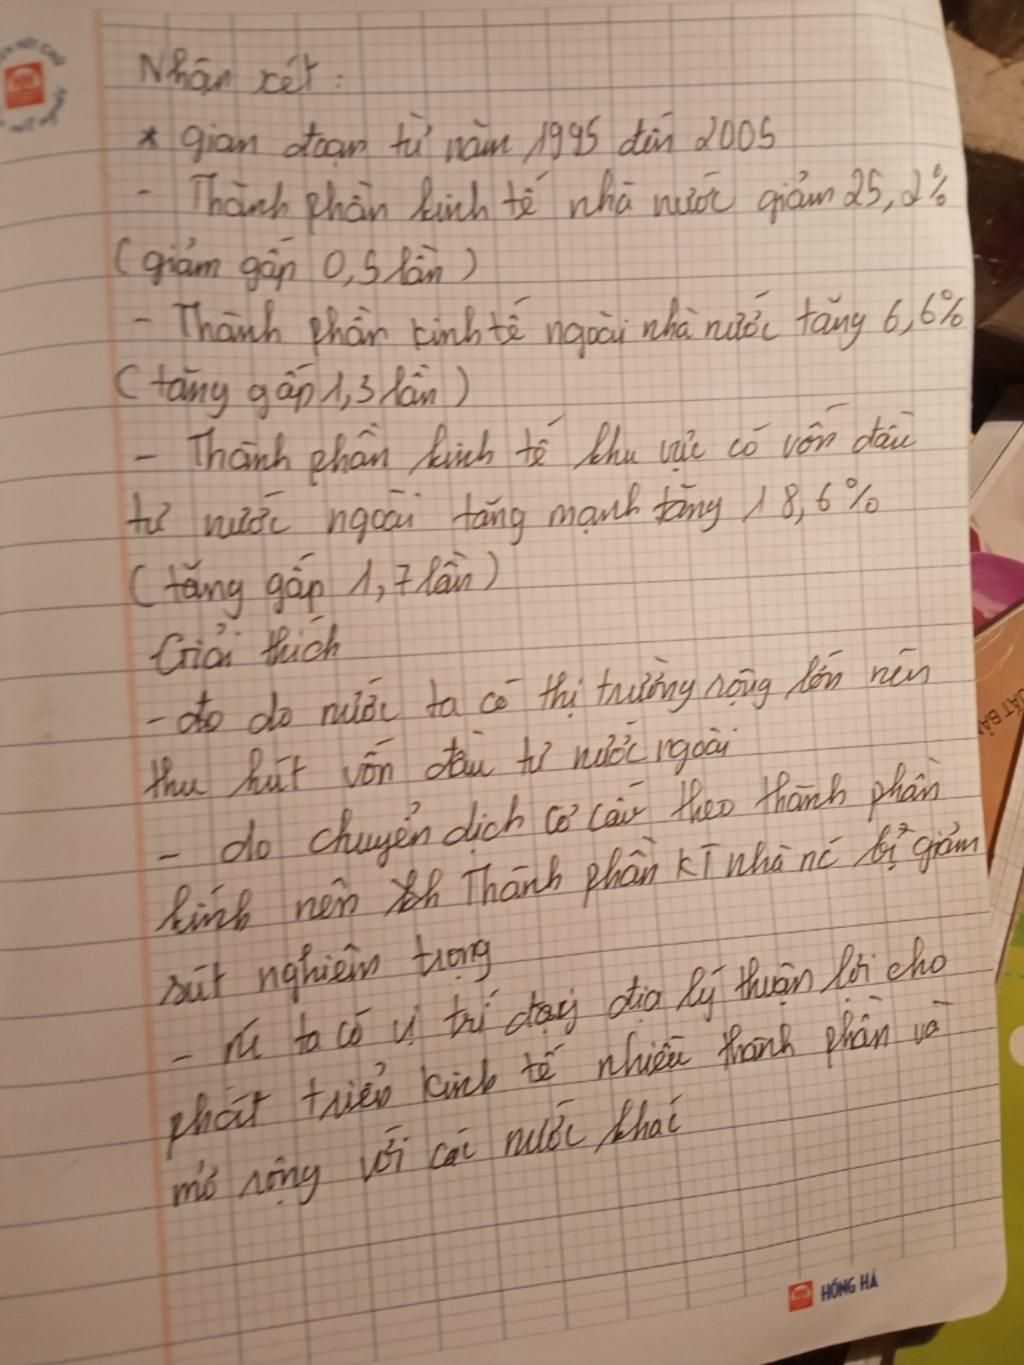 Nhận xét:
* gian đoạn từ năm 1995 đến 2005
- Thành phần kinh tế nhà nước giảm 25,2%
(giảm gấp 0,5 lần)
- Thành phần kinh tế ngoài nhà nước tăng 6,6%
(tăng gấp 1,3 lần)
- Thành phần kinh tế khu vực có vốn đầu
tư nước ngoài tăng mạnh tăng 18,6%
(tăng gấp 1,7 lần)
Giải thích
- do do nước ta có thị trường rộng lớn nên
thu hút vốn đầu tư nước ngoài
- do chuyển dịch cơ cấu theo thành phần
kinh nên Thành phần KT nhà nc bị giảm
sút nghiêm trọng
- ta có vị trí địa lý thuận lợi cho
phát triển kinh tế nhiều thành phần và
mở rộng với các nước khác
HỒNG HÀ